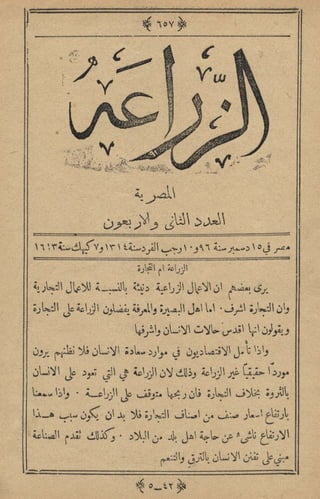 ٦٥٧
الزّراعَةُ
المصرية
العدد الثانى والاربعون
مصر فى ١٥ دسمبر سنة ٩٦ و ١٠ رجب الفرد سنة ١٣١٤ و ٧ كيهك سنة ١٦١٣
الزراعة ام التجارة
يرى بعضهم ان الاعمال الزراعية دنيئة بالنسبة للاعمال التجارية
وان التجارة اشرف · اما اهل البصيرة والمعرفة يفضلون الزراعة على التجارة
ويقولون انها اقدس حالات الانسان واشرفها
واذا تأمل الاقتصاديون في موارد سعادة الانسان فلا نظنهم يرون
مورداً حقيقياً غير الزراعة وذلك لان الزراعة هي التي تعود على الانسان
بالثروة بخلاف التجارة فان ربحها متوقف على الزراعة · واذا سمعنا
بارتفاع اسعار صنف من اصناف التجارة فلا بد ان يكون سبب هذا
الارتفاع ناشىء عن حاجة اهل بلد من البلاد · وكذلك تقدم الصناعة
مبني على تفنن الانسان بالترقي والتنعم
٤٢ــ٥